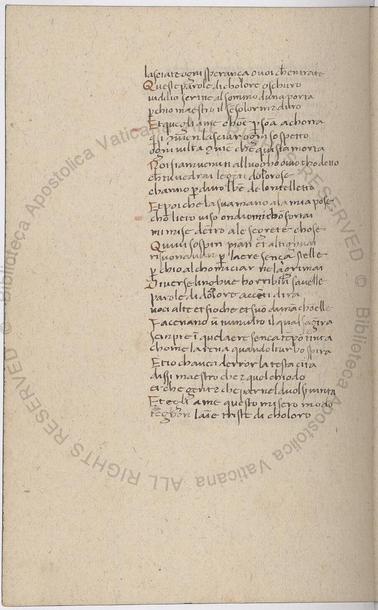 lasciate ogni speranca o voi chentrate
Queste parole di cholore oschuro
vidio scritte al sommo duna porta
perchio maestro il senso lor me duro
Et quegli a me chome persona acchorta
qui si convien lasciar ogni sospetto
ogni vilta convien che qua sia morta
Noi sian venuti alluogho ovio tho detto
che tu vedrai le genti dolorose
channo perduto il ben de lontelletto
Et poi che la sua mano ala mia pose
chon lieto viso ondio mi chonfortai
mi mise dentro ale segrete chose
Quivi sospiri pianti et alti guai
risonavan per laere senca stelle
perchio al chominciar ne lagrimai
Diverse lingue horribili favelle
parole di dolore accenti dira
voci alte et fioche et suon di man chon elle
Facevano un tumulto il qual sagira
sempre in quelaere senca tempo tinta
chome la rena quando il turbo spira
Et io chavea derror la testa cinta
dissi maestro che e quel chiodo
et che gente che par nel duol si vinta
Et egli a me questo misero modo
tengon lanime triste di choloro
© Biblioteca Apostolica Vaticana ALL RIGHTS RESERVED